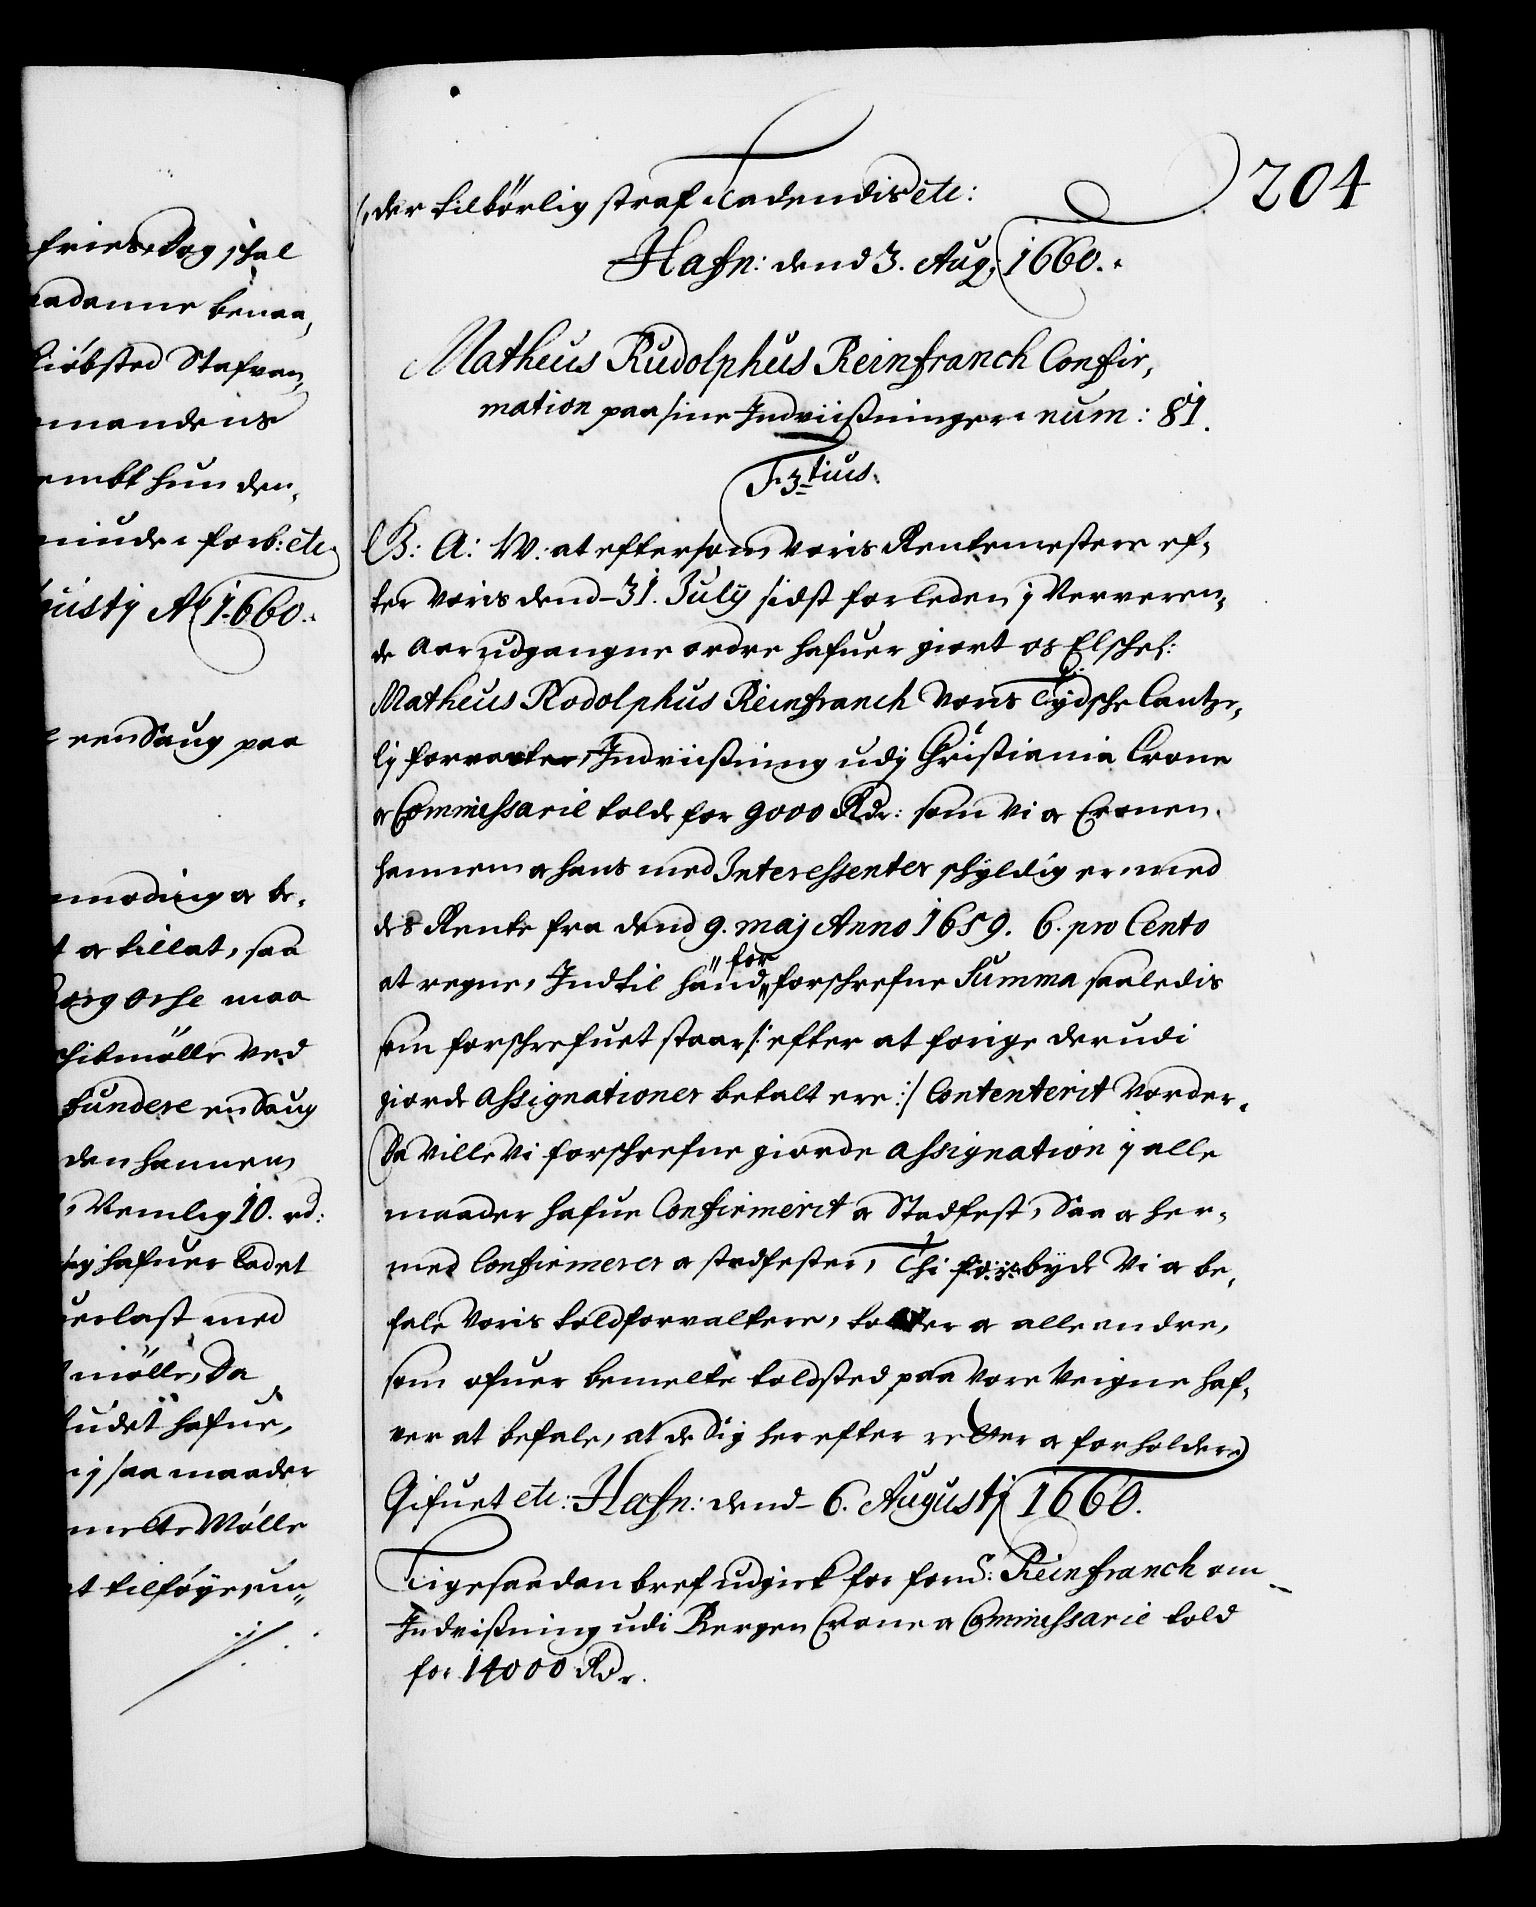 204
der tilbörlig straf Ladendis etc:
Hafn: dend 3. Aug: 1660.
Matheus Rudolphus Reinfranch Confir,
mation paa sine Indviißninger num: 81.
F. 3tius.
B: A: W: at eftersom voris Rentemestere ef,
ter voris dend 31. July sidst forleden j Nerveren,
de aar udgangne ordre hafuer giort os Elschel:
Matheus Rodolphus Reinfranch voris Tydsche Cantze,
lj forvalter, Indviißning udj Christiania Crone
oc Commissarie told for 9000 Rdr: som vi oc Cronen
hannem oc hans med Interessenter schyldig er, med
des Rente fra dend 9. maj Anno 1659. 6. pro Cento
at regne, Indtil hand for forschrefne Summa saaledis
som forschrefuet staar /: efter at forige derudi
giorde assignationer betalt ere :/ Contenterit vorder,
Da ville vi forschrefne giorde assignation j alle
maader hafue Confirmerit oc Stadfest, Saa oc her,
med Confirmerer oc stadfester, Thi forbyde vi oc be,
fale voris toldforvaltere, tolder oc alle andre,
som ofuer bemelte toldsted paa vore veigne haf,
ver at befale, at de sig her efter retter oc forholder
Gifuet etc: Hafn: dend 6. Augustj 1660.
Ligesaadan bref udgick for fornd: Reinfranch om
Indvißning udi Bergen Crone oc Commissarie told
for 14000 Rdr.
friedag schal
adanne benaa,
kiöbsted Stafvan,
mandens
embt hun der,
forb: etc
gustj Ao 1660.
een Saug paa
nmoding oc be,
t oc tillat, saa
maa
mölle ved
fundere en Saug
den hannem
, Nemlig 10. rd:
hafuer ladet
med
mölle, Da
udet hafue,
j saa maader
melte Mölle
t tilföye